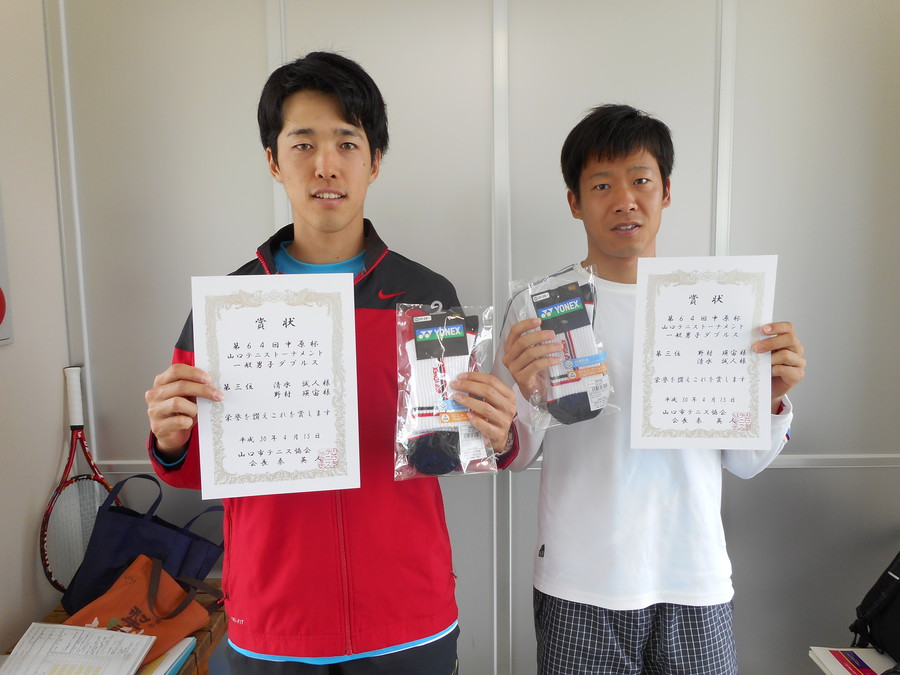 賞状
第64回中原杯
山口テニストーナメント
一般男子ダブルス
第三位 清水 誠人様
野村 瑛宙様
栄誉を讃えこれを賞します
平成30年4月15日
山口市テニス協会
会長 秦 英人
YONEX
YONEX
賞状
第64回中原杯
山口テニストーナメント
一般男子ダブルス
第三位 野村 瑛宙様
清水 誠人様
栄誉を讃えこれを賞します
平成30年4月15日
山口市テニス協会
会長 秦 英人